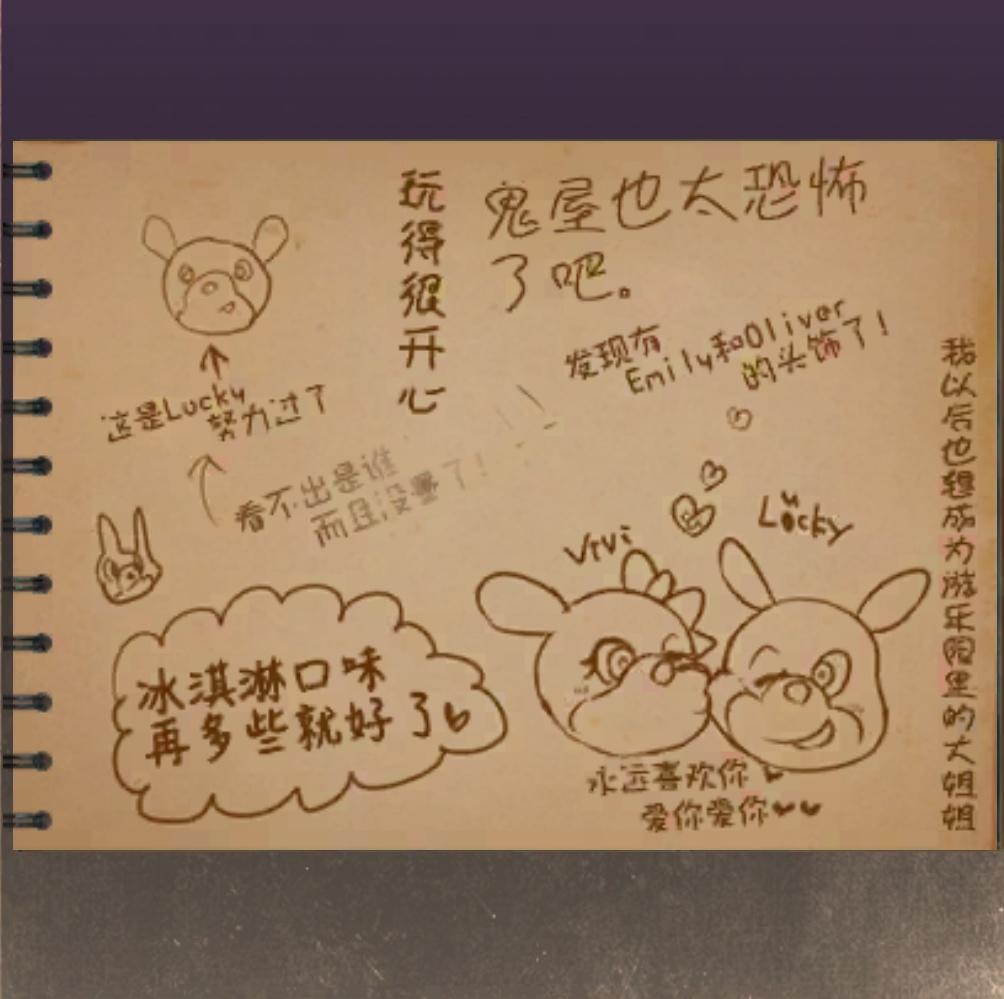 玩得很开心
鬼屋也太恐怖
了吧。
发现有
Emily和Oliver
的头饰了!
这是Lucky
努力过了
看不出是谁
而且没画了!
Vivi
Lucky
冰淇淋口味
再多些就好了
永远喜欢你
爱你爱你
我以后也想成为游乐园里的大姐姐